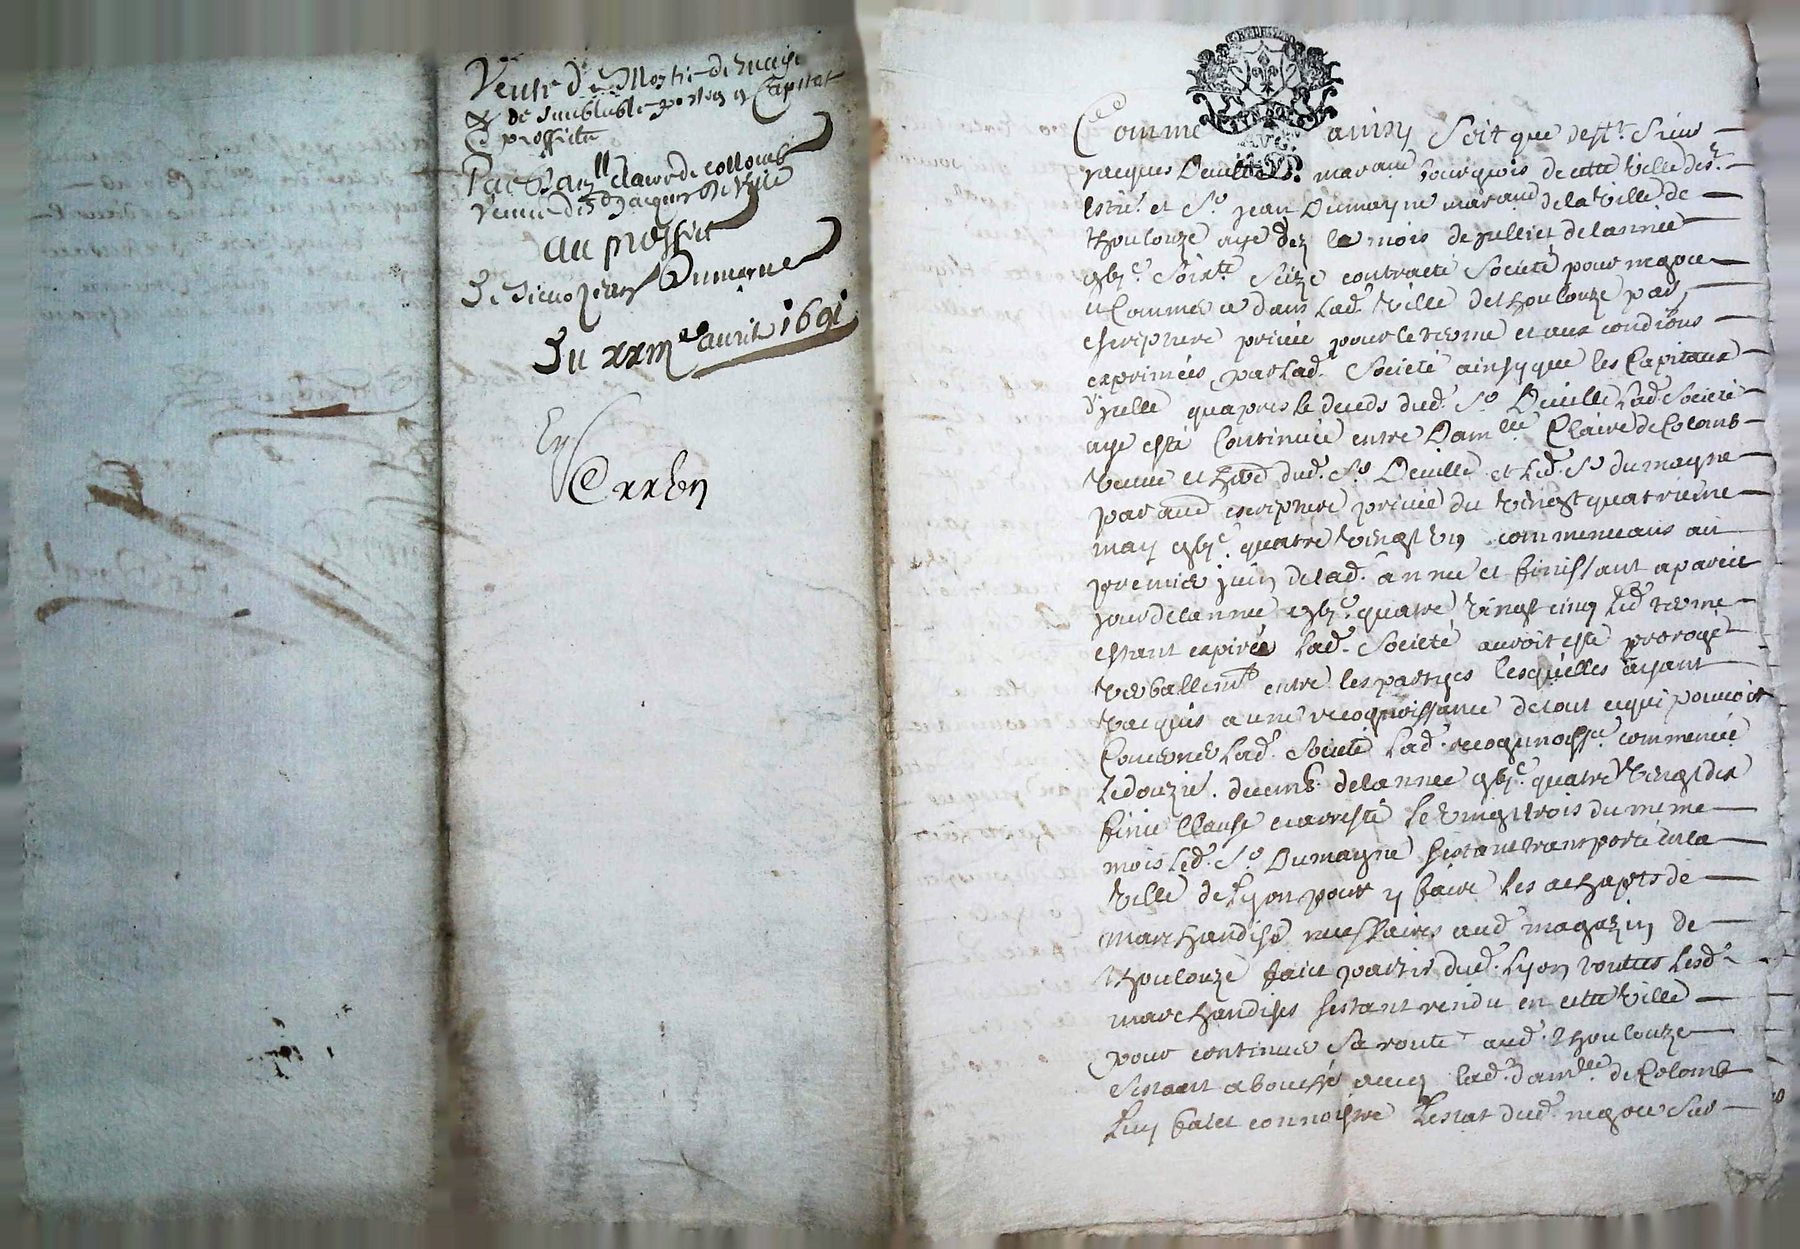 Vente de Moitié de
& de semblable portion Capital
& proffits
Par Dam.lle claire de collomb
veuve de Sr Jacques Deville
au proffit
De Sieur Jean Dumayne
Du avril 1691
Comme ainsy soit que defft. Sieur
Jacques Deuille marand bourgeois de cette Ville des.
et Sr. Jean Dumayne marand de la Ville de
Thoulouze aye dez le mois de julliet de lannée
gbjc. Soixte. Seitze contracté Societé pour negoce
et Commerce dans lad. Ville de Thoulouze par
escripture privée pour le terme et aux condions
exprimées par lad. Societé ainsy que les Capitaux
d'jcelle quapres le deceds dud. Sr Deuille lad. Societé
aye esté Continuée entre Damlle Claire de Colomb
Veuve et dud. Sr. Deuille et led. Sr dumayne
par escripture privée du vingt quatrieme
may gbjc. quatre vingt un commencans au
premier juin de lad. année et finissant a pareil
jour de lannée gbjc. quatre vingt cinq led. terme
estant expiré lad. Societé auroit esté prorogé
verballemt entre les partyes lesquelles ayant
Vacqués a une recognoissance de tout ce qui pouvoit
Concerner lad. Societé lad. recognoissce commencée
Ledouzie. decemb. de lannée gbjc. quatre vingt dix
finie Clause et arresté le vingt trois du meme
mois led. Sr Dumayne sestant transporté en la
Ville de Lyon pour y faire les achapts de
Marchandise necessaires aud magazin de
Thoulouze faict partir dud. Lyon toutes lesd.
marchandises sestant rendu en cette Ville
pour continuer Sa route aud. Thoulouze
Sestant abouché avecq lad. damlle. de Colomb
Luy faict connoistre Lestat dud. negoce sur